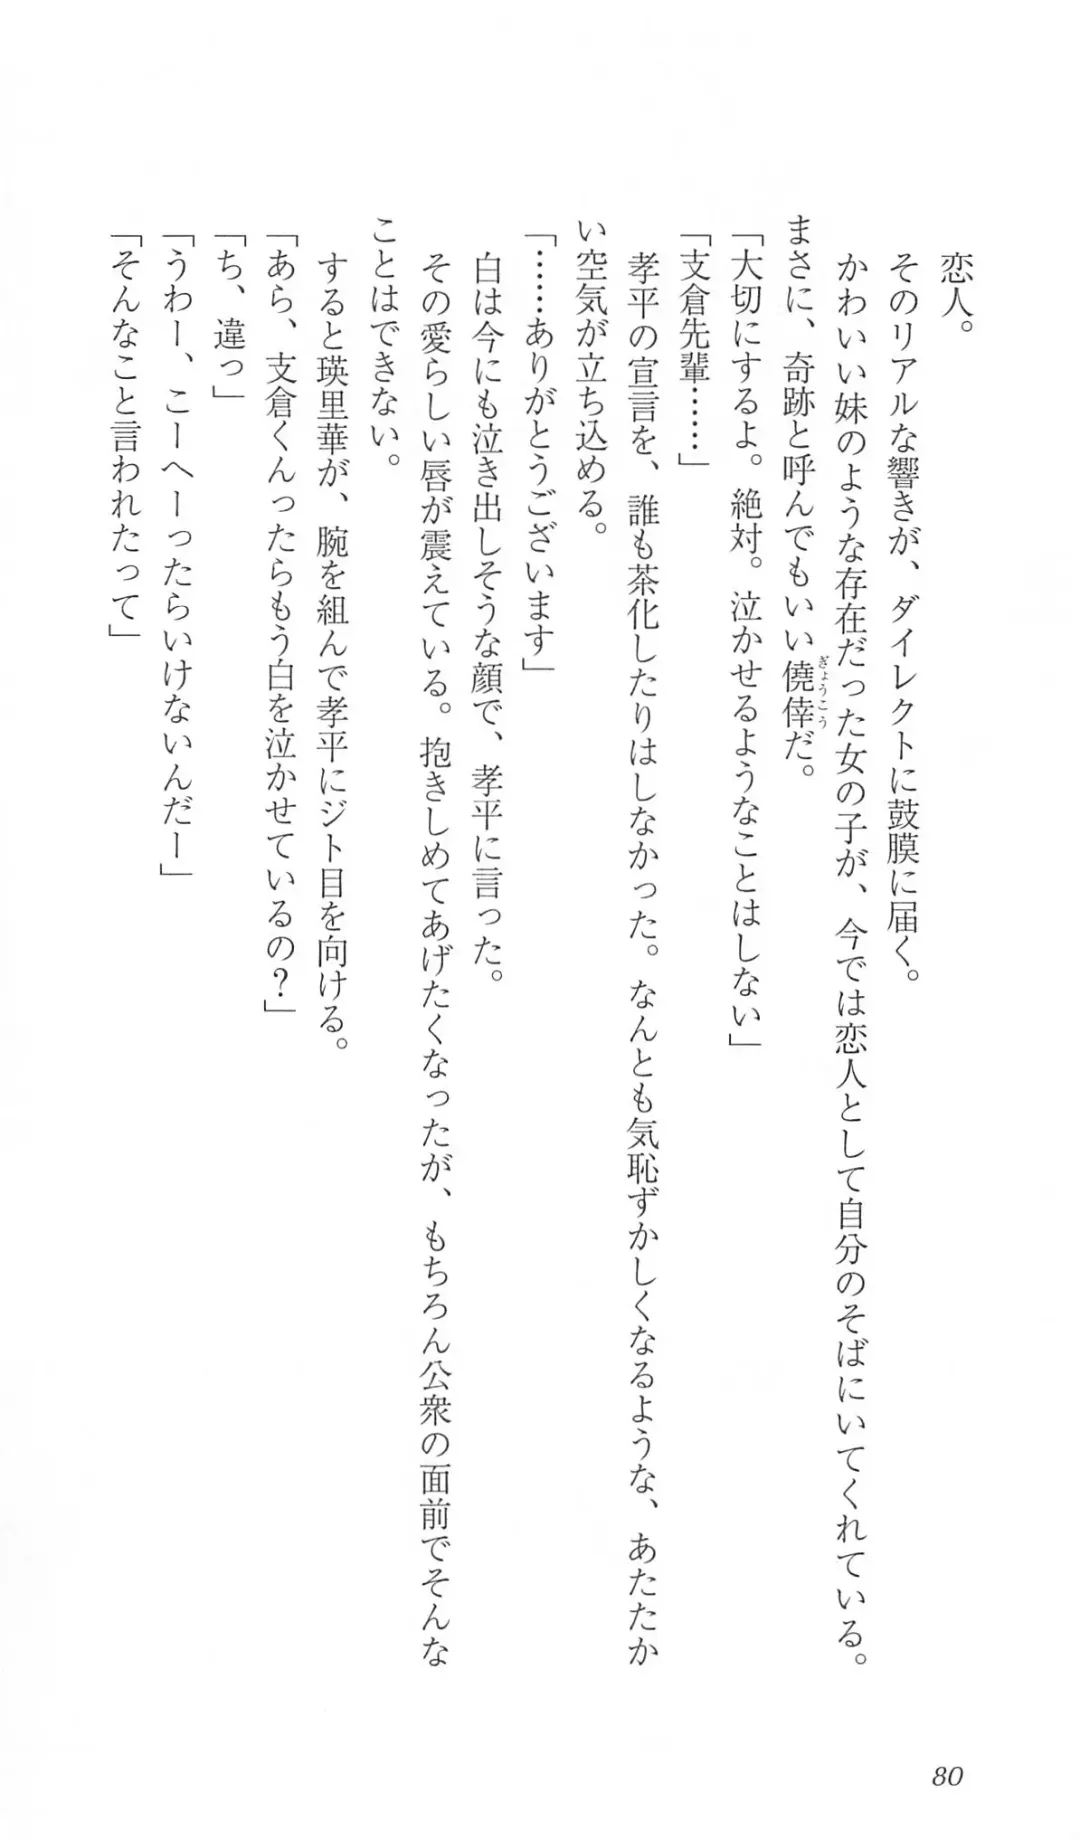 恋人。
そのリアルな響きが、ダイレクトに鼓膜に届く。
かわいい妹のような存在だった女の子が、今では恋人として自分のそばにいてくれている。
まさに、奇跡と呼んでもいい僥倖だ。
ぎょうこう
「大切にするよ。絶対。泣かせるようなことはしない」
「支倉先輩……」
孝平の宣言を、誰も茶化したりはしなかった。なんとも気恥ずかしくなるような、あたたか
い空気が立ち込める。
「……ありがとうございます」
白は今にも泣き出しそうな顔で、孝平に言った。
その愛らしい唇が震えている。抱きしめてあげたくなったが、もちろん公衆の面前でそんな
ことはできない。
すると瑛里華が、腕を組んで孝平にジト目を向ける。
「あら、支倉くんったらもう白を泣かせているの？」
「ち、違っ」
「うわー、こーへーったらいけないんだー」
「そんなこと言われたって」
80